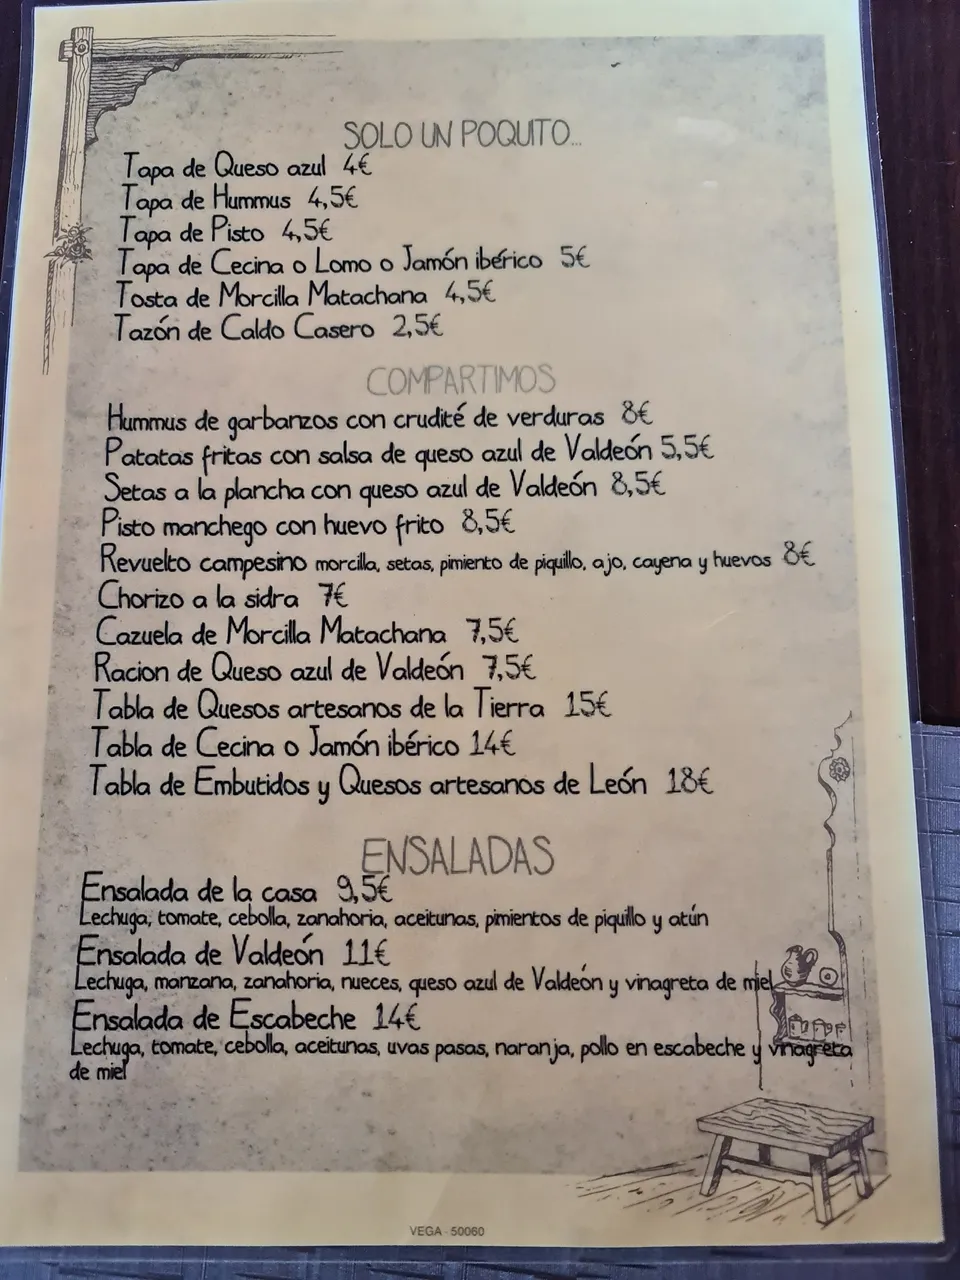 SOLO UN POQUITO...
Tapa de Queso azul 4€
Tapa de Hummus 4,5€
Tapa de Pisto 4,5€
Tapa de Cecina o Lomo o Jamón ibérico 5€
Tosta de Morcilla Matachana 4,5€
Tazón de Caldo Casero 2,5€
COMPARTIMOS
Hummus de garbanzos con crudité de verduras 8€
Patatas fritas con salsa de queso azul de Valdeón 5,5€
Setas a la plancha con queso azul de Valdeón 8,5€
Pisto manchego con huevo frito 8,5€
Revuelto campesino morcilla, setas, pimiento de piquillo, ajo, cayena y huevos 8€
Chorizo a la sidra 7€
Cazuela de Morcilla Matachana 7,5€
Racion de Queso azul de Valdeón 7,5€
Tabla de Quesos artesanos de la Tierra 15€
Tabla de Cecina o Jamón ibérico 14€
Tabla de Embutidos y Quesos artesanos de León 18€
ENSALADAS
Ensalada de la casa 9,5€
Lechuga, tomate, cebolla, zanahoria, aceitunas, pimientos de piquillo y atún
Ensalada de Valdeón 11€
Lechuga, manzana, zanahoria, nueces, queso azul de Valdeón y vinagreta de miel
Ensalada de Escabeche 14€
Lechuga, tomate, cebolla, aceitunas, uvas pasas, naranja, pollo en escabeche y vinagreta
de miel
VEGA - 50060